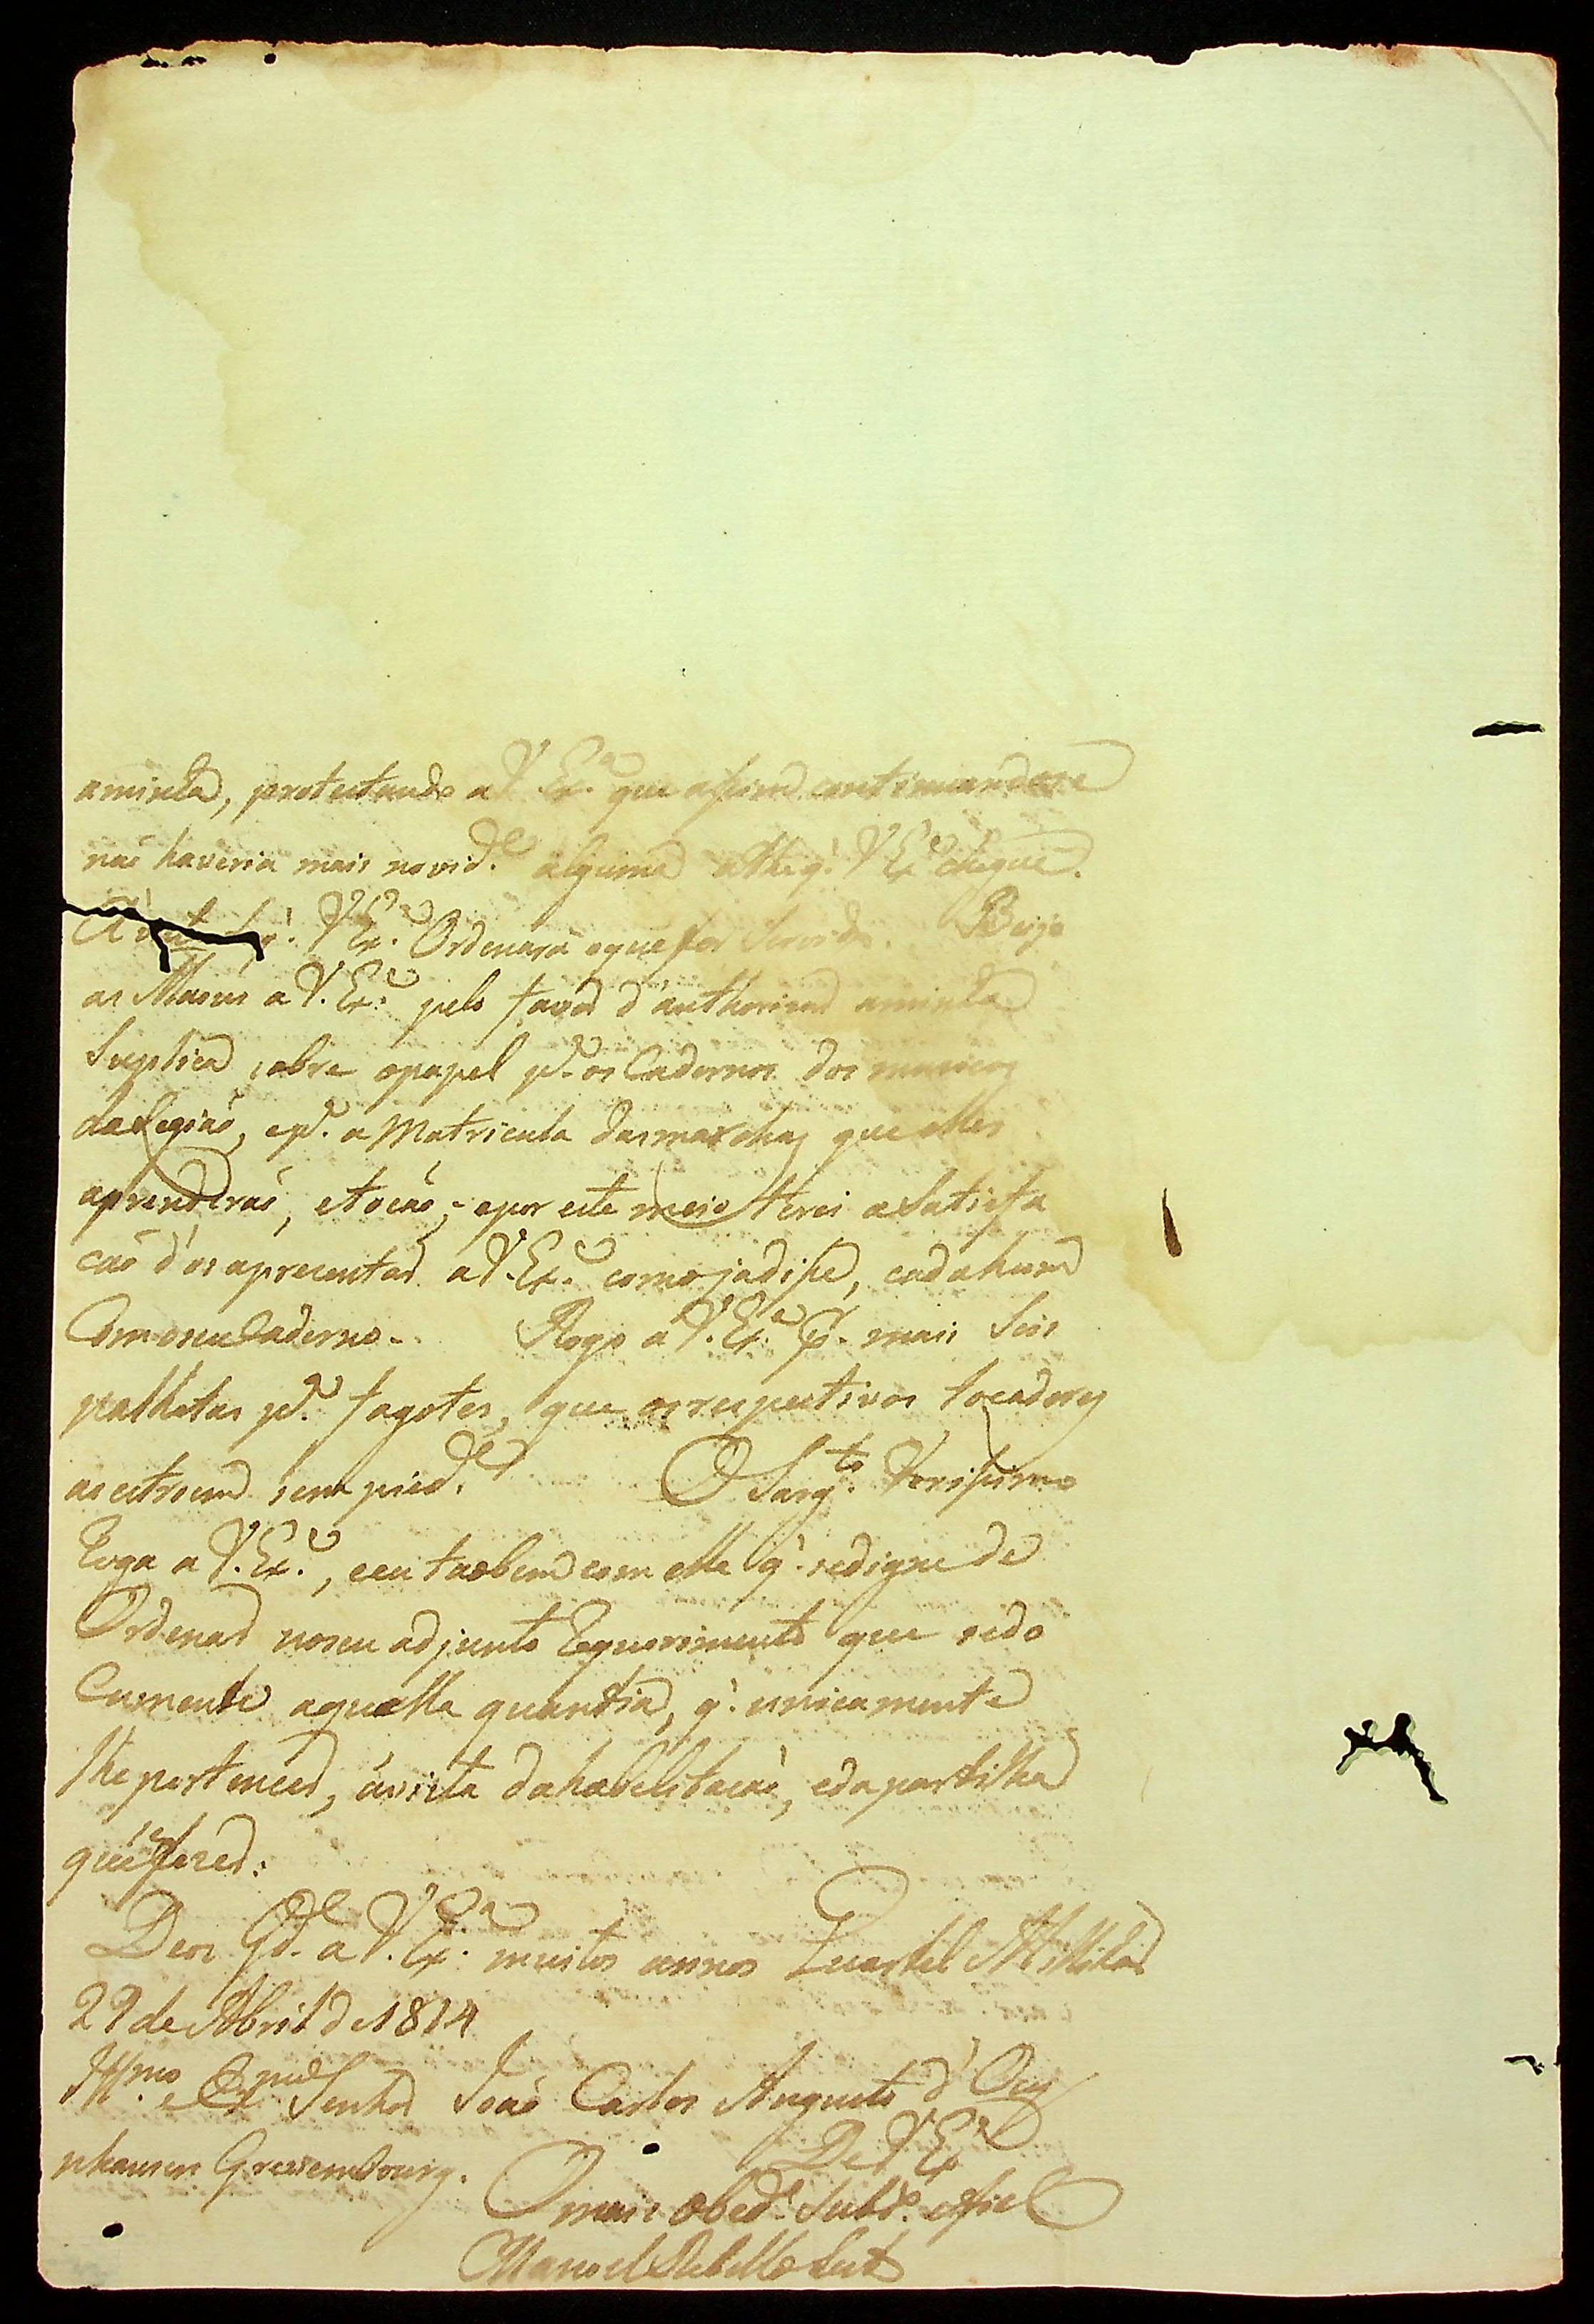 aminha, protestando a V. Ex.ª que assim continuandose
não haveria mais novid.e alguma athe q̃. V Ex.ª chegue.
V. Ex.ª Ordenará oque for Servido. Beijo
as Maons a V. Ex.ª pelo favor d'authorizar aminha
Suplica sobre opapel p.ª os Cadernos dos muzicos
da Legião, ep.ª a Matricula dasmarchas que elles
aprenderaõ, etocaõ, epor este meio terei a Satisfa
caõ d'os aprezentar a V. Ex.ª como jadisse, cadahum
Com oseu Caderno. Rogo a V. Ex.ª p.r mais Seis
palhetas p.ª fagotes, que os respectivos tocadores
as estroem sem pied.e O Sarg.to Verissimo
Roga a V. Ex.ª, eeu taobem com elle q̃. sedigne de
Ordenar noseu adjunto Requerimento que sedo
Cumente aquella quantia, q̃. unicamente
lhe pertencer, ávista dahabelitacaõ, eda partilha
que fizer.
Deos G.de a V. Ex.ª muitos annos Quartel Millitar
29 de Abril de 1814
Ill.mo e Ex.mo Senhor Joaõ Carlos Augusto d'Oey
nhausen Grevembourg.
De V Ex.ª
O mais obed.e Subd.o efiel
Manoel Rebello Leit